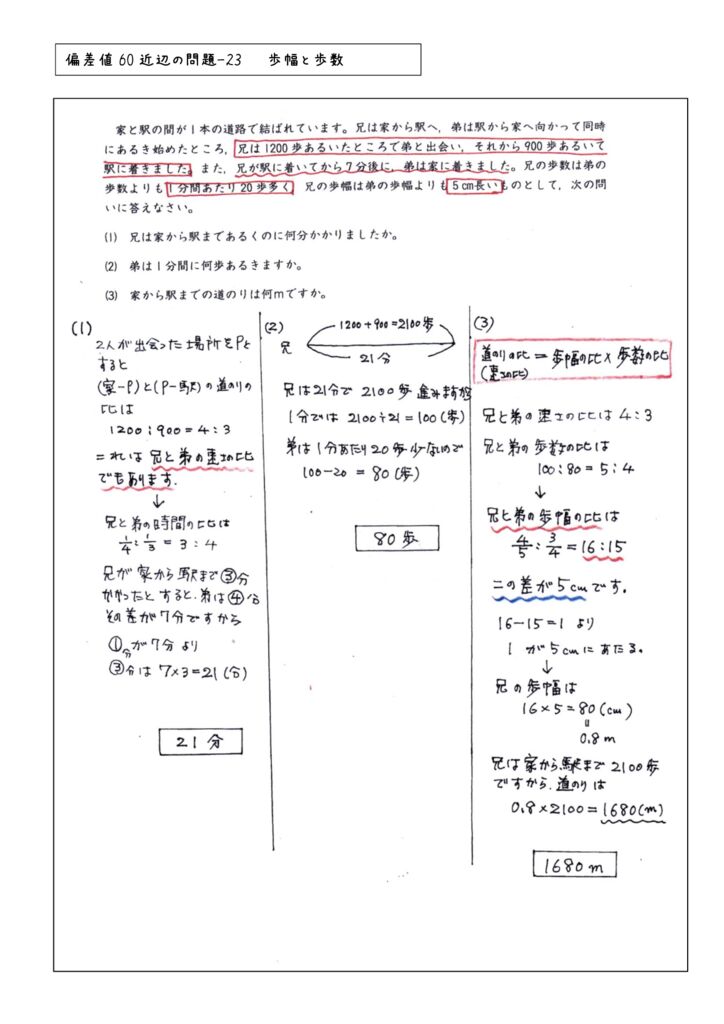 偏差値60近辺の問題-23　歩幅と歩数
家と駅の間が1本の道路で結ばれています。兄は家から駅へ，弟は駅から家へ向かって同時
にあるき始めたところ，兄は1200歩あるいたところで弟と出会い，それから900歩あるいて
駅に着きました。また，兄が駅に着いてから7分後に，弟は家に着きました。兄の歩数は弟の
歩数よりも1分間あたり20歩多く，兄の歩幅は弟の歩幅よりも5cm長いものとして，次の問
いに答えなさい。
(1) 兄は家から駅まであるくのに何分かかりましたか。
(2) 弟は1分間に何歩あるきますか。
(3) 家から駅までの道のりは何mですか。
(1)
2人が出会った場所をPと
すると
(家-P)と(P-駅)の道のりの
比は
1200:900=4:3
これは兄と弟の速さの比
でもあります.
↓
兄と弟の時間の比は
1/4:1/3=3:4
兄が家から駅まで③分
かかったとすると、弟は④分
その差が7分ですから
①分が7分より
③分は7×3=21(分)
21分
(2)
1200+900=2100歩
兄
21分
兄は21分で2100歩進みますから
1分では2100÷21=100(歩)
弟は1分あたり20歩少ないので
100-20=80(歩)
80歩
(3)
道のりの比=歩幅の比×歩数の比
(速さの比)
兄と弟の速さの比は4:3
兄と弟の歩数の比は
100:80=5:4
↓
兄と弟の歩幅の比は
4/5:3/4=16:15
この差が5cmです.
16-15=1より
1が5cmにあたる.
↓
兄の歩幅は
16×5=80(cm)
=
0.8m
兄は家から駅まで2100歩
ですから、道のりは
0.8×2100=1680(m)
1680m